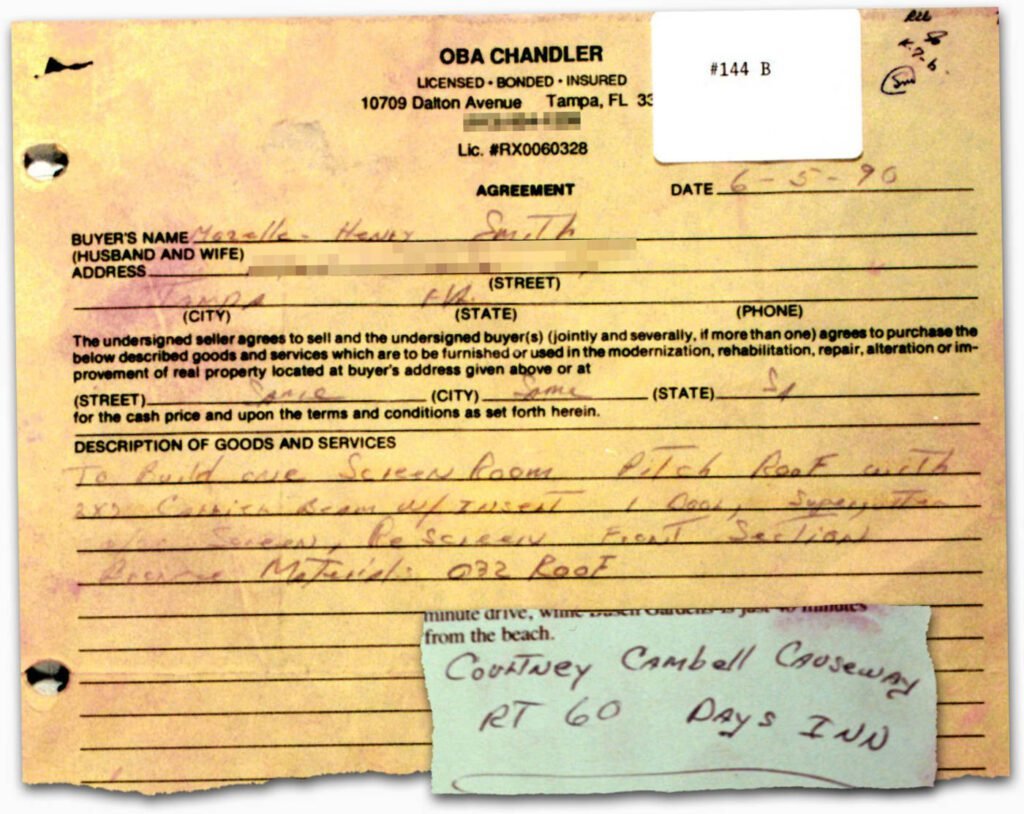 OBA CHANDLER
#144 B
LICENSED • BONDED • INSURED
10709 Dalton Avenue Tampa, FL 33
Lic. #RX0060328
AGREEMENT DATE 6-5-90
BUYER'S NAME Mozelle - Henry Smith
(HUSBAND AND WIFE)
ADDRESS
(STREET)
Tampa Fla.
(CITY) (STATE) (PHONE)
The undersigned seller agrees to sell and the undersigned buyer(s) (jointly and severally, if more than one) agrees to purchase the
below described goods and services which are to be furnished or used in the modernization, rehabilitation, repair, alteration or im-
provement of real property located at buyer's address given above or at
(STREET) Same (CITY) Same (STATE) SA
for the cash price and upon the terms and conditions as set forth herein.
DESCRIPTION OF GOODS AND SERVICES
To Build one Screen Room Pitch Roof with
Beam w/ Insert 1 Door,
Screen, ReScreen Front Section
Materials 032 Roof
minute drive, while Busch Gardens is just 40 minutes
from the beach.
Courtney Cambell Causeway
RT 60 Days Inn